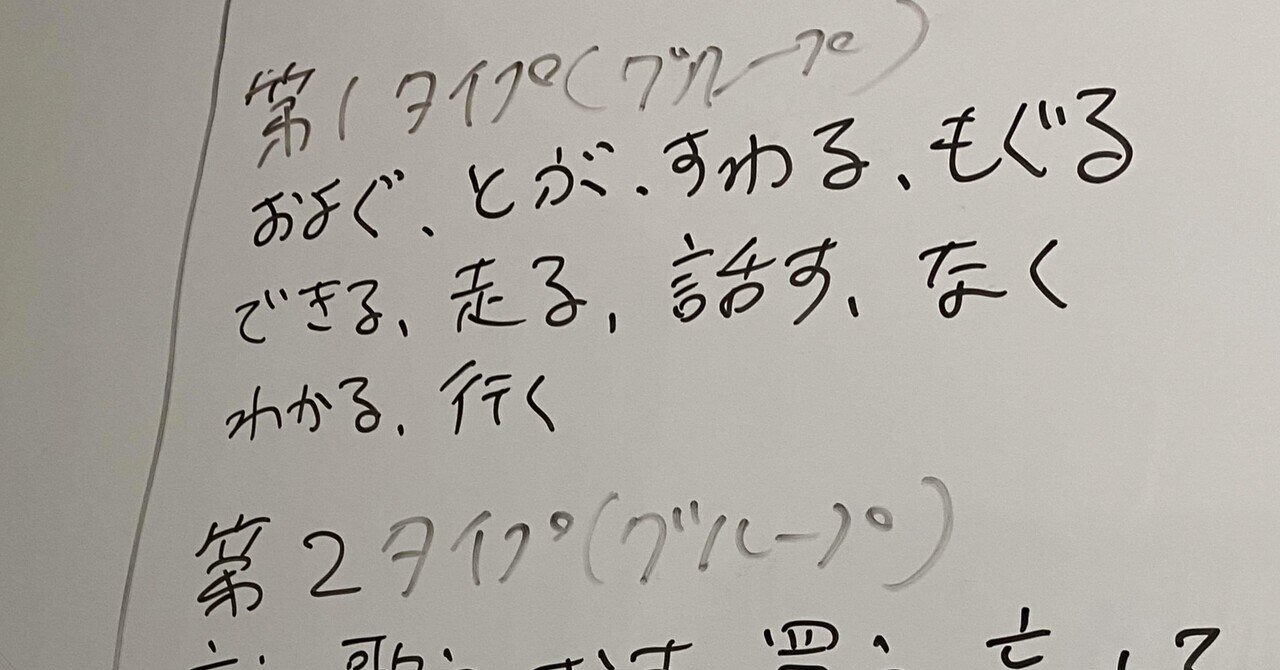 第1タイプ(グループ)
およぐ、とが、すわる、もぐる
できる、走る、話す、なく
わかる、行く
第2タイプ(グループ)